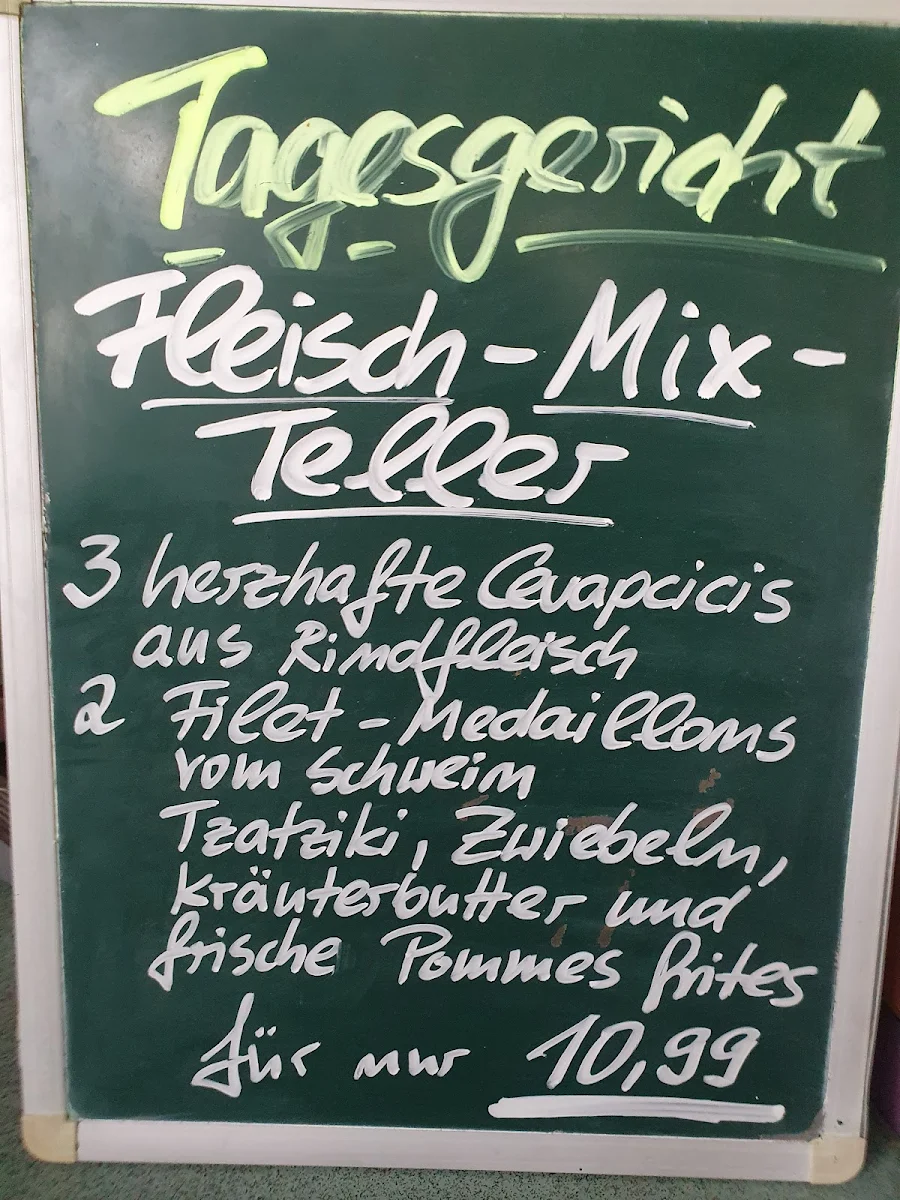 Tagesgericht
Fleisch-Mix-
Teller
3 herzhafte Cevapcicis
aus Rindfleisch
2 Filet-Medaillons
vom Schwein
Tzatziki, Zwiebeln,
Kräuterbutter und
frische Pommes frites
für nur 10,99